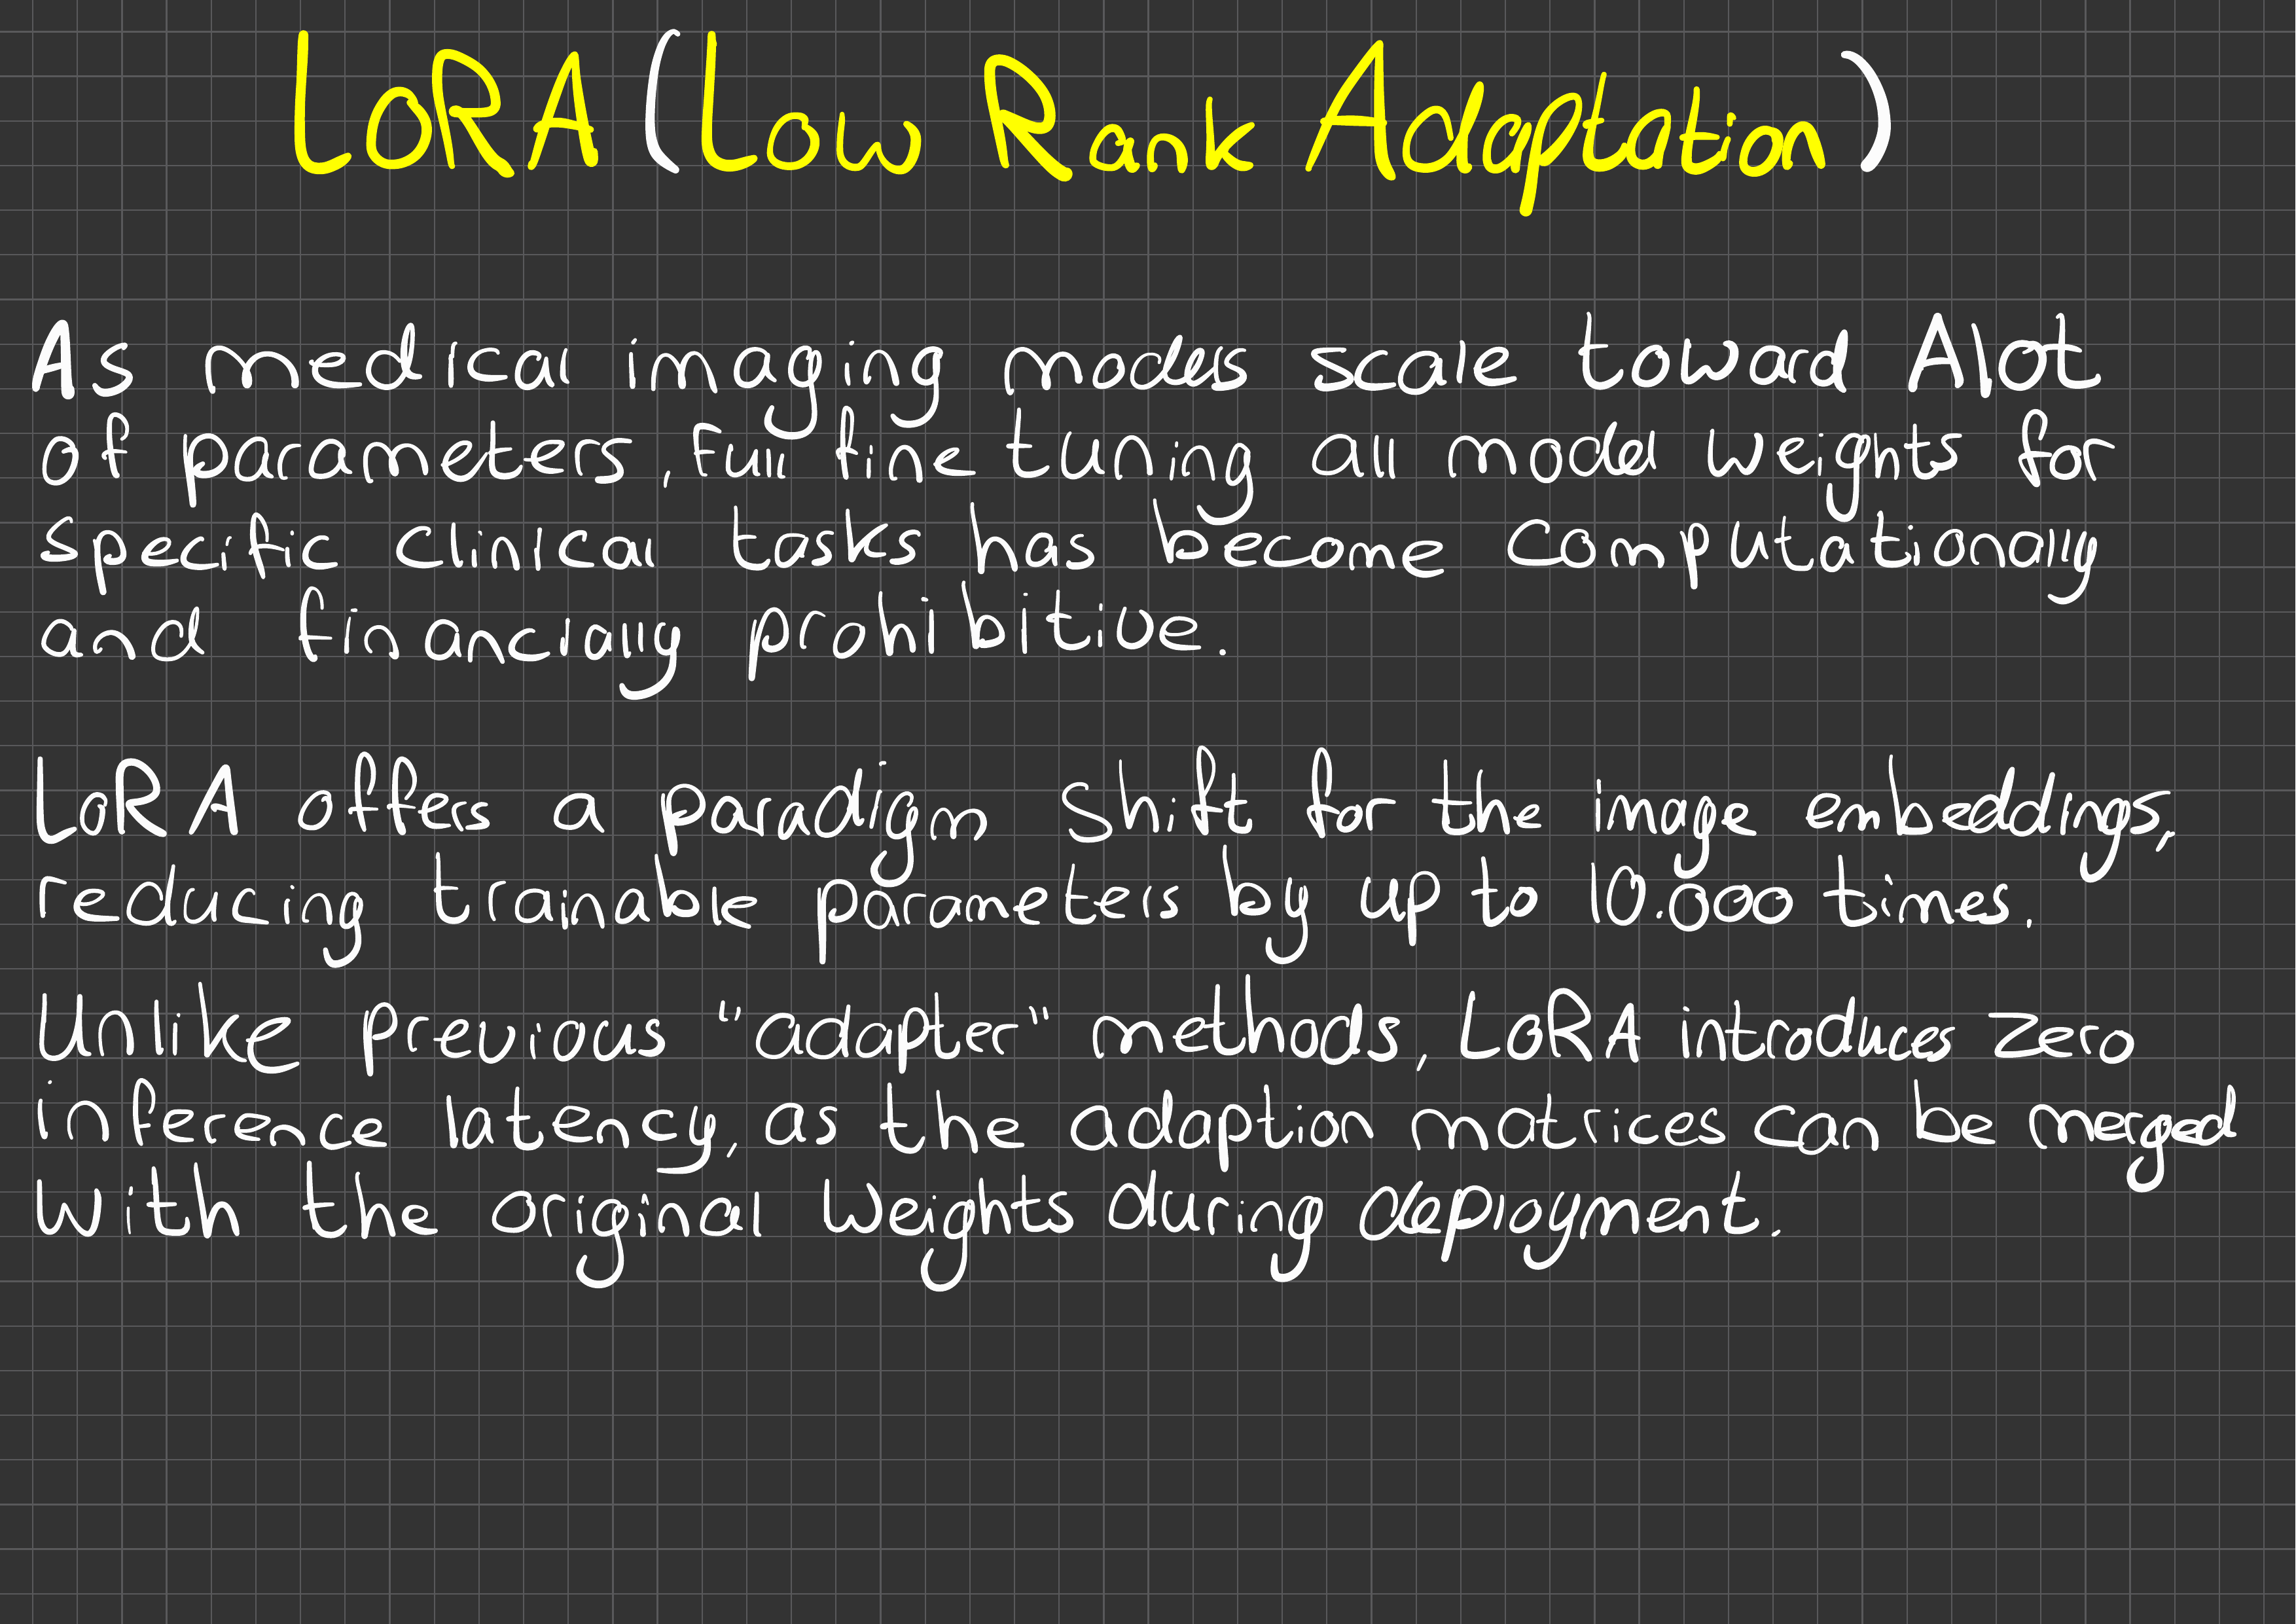 LoRA (Low Rank Adaptation)
As medical imaging models scale toward Alot
of parameters, full fine tuning all model weights for
specific clinical tasks has become computationally
and financially prohibitive.
LoRA offers a paradigm shift for the image embeddings,
reducing trainable parameters by up to 10.000 times.
Unlike previous "adapter" methods, LoRA introduces zero
inference latency, as the adaption matrices can be merged
with the original weights during deployment.